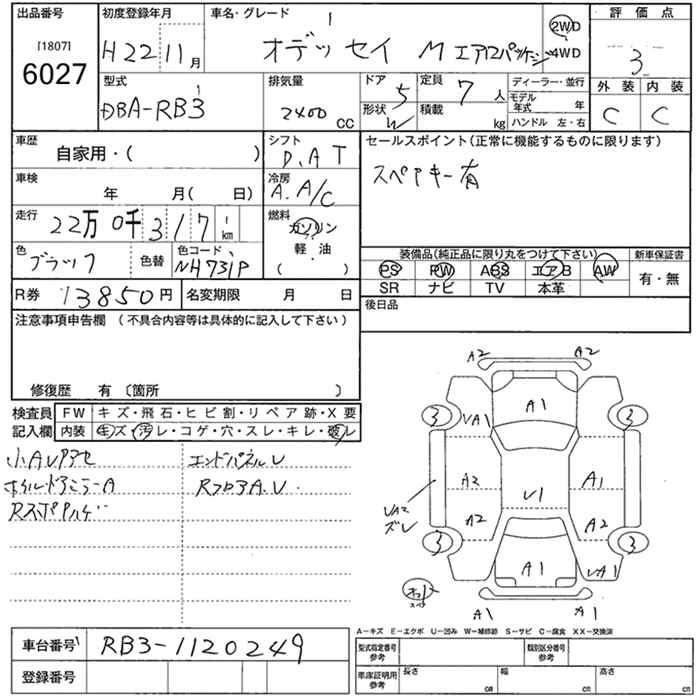 出品番号 初度登録年月 車名・グレード 評価点
[1807]
6027
H22 11月 オデッセイ M エアロパッケージ 2WD 4WD 3
型式 排気量 ドア 定員 ディーラー・並行 外装 内装
DBA-RB3 2400 CC 5 7人 モデル年式 年 C C
形状 W 積載 kg ハンドル 左・右
車歴 シフト セールスポイント(正常に機能するものに限ります)
自家用・( ) D.AT スペアキー有
車検 冷房
年 月( 日) A.A/C
走行 燃料
22万0千317km ガソリン
色 色替 色コード 軽・油
ブラック NH731P ( )
装備品(純正品に限り丸をつけて下さい) 新車保証書
PS PW ABS エアB AW 有・無
SR ナビ TV 本革
R券 13850円 名変期限 月 日 後日品
注意事項申告欄 (不具合内容等は具体的に記入して下さい)
修復歴 有〔箇所 〕
検査員 FW キズ・飛石・ヒビ割・リペア跡・X要
記入欄 内装 キズ・汚レ・コゲ・穴・スレ・キレ・破レ
エンドパネルU
RフロアA.U
A2 A2
A1
3 3
UA1
A2 A1
U1
UA2
ズレ
A2 A2
3 3
A1 UA1
スペア
A1 A1
A-キズ E-エクボ U-凹み W-補修跡 S-サビ C-腐食 XX-交換済
車台番号 RB3-1120249
登録番号
型式指定番号 参考 類別区分番号 参考
車庫証明用 参考 長さ cm 幅 cm 高さ cm